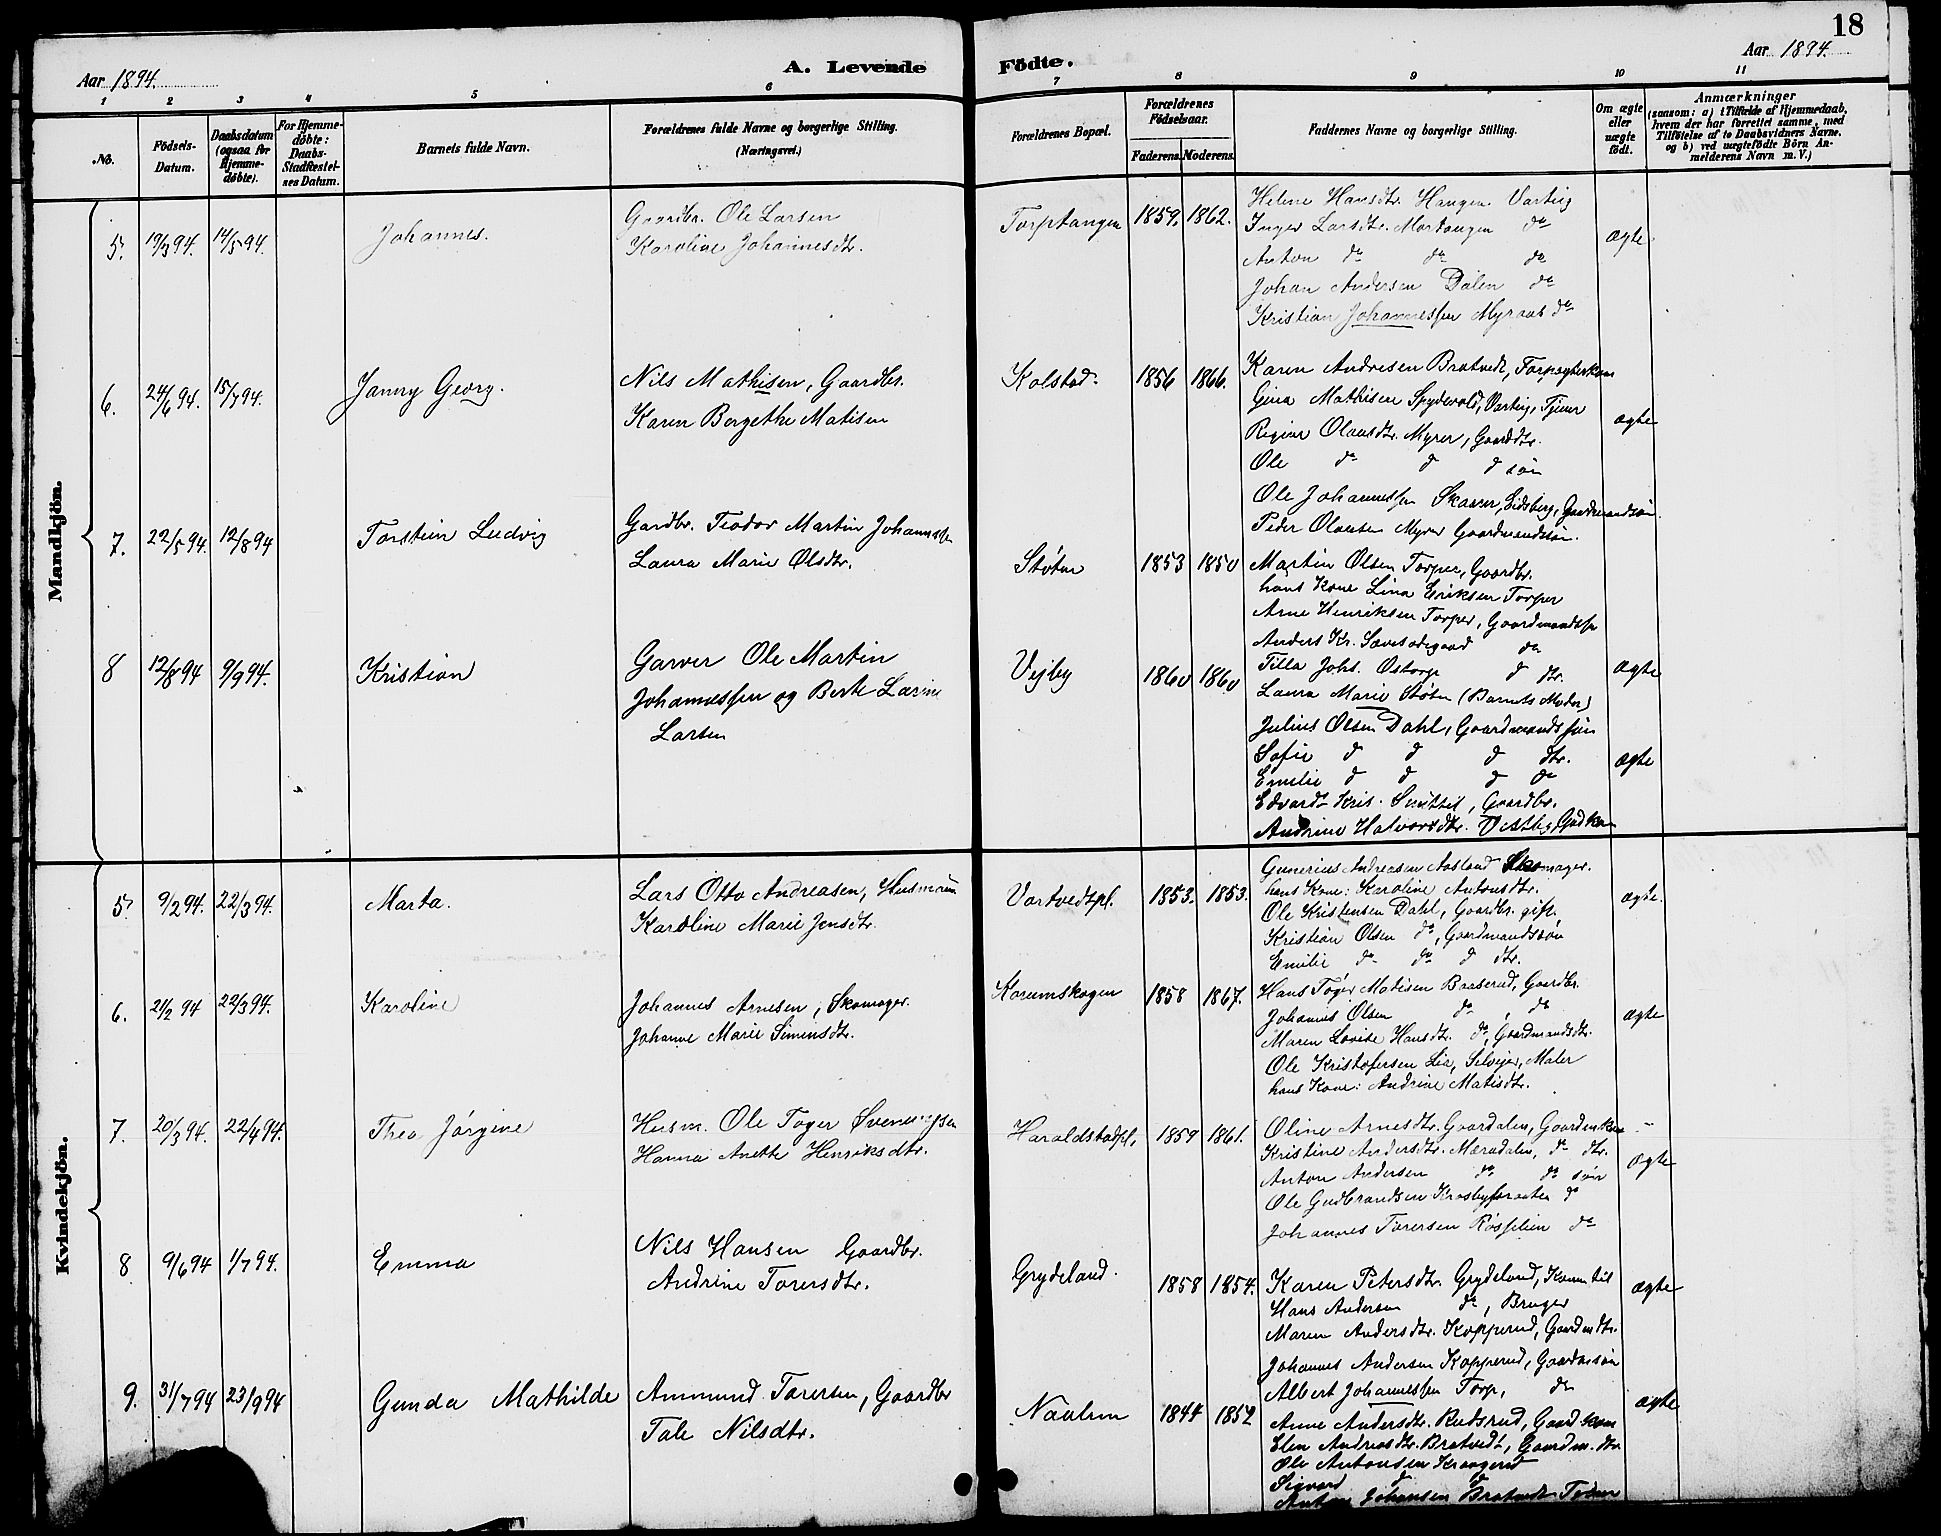 18
Aar 1894.
A. Levende Fødte.
Aar 1894.
1 2 3 4 5 6 7 8 9 10 11
No.
Fødsels-Datum.
Daabsdatum (ogsaa for Hjemme-døbte).
For Hjemme-døbte: Daabs-Stadfæstel-ses Datum.
Barnets fulde Navn.
Forældrenes fulde Navne og borgerlige Stilling.
(Næringsvei.)
Forældrenes Bopæl.
Forældrenes Fødselsaar.
Faderens. Moderens.
Faddernes Navne og borgerlige Stilling.
Om ægte eller uægte født.
Anmærkninger
(saasom: a) i Tilfælde af Hjemmedaab,
hvem der har forrettet samme, med
Tilføielse af to Daabsvidners Navne.
og b) ved uægtefødte Börn An-
melderens Navn m. V.)
Mandkjön.
5. 19/3 94. 14/5 94. Johannes. Gaardbr. Ole Larsen
Karoline Johannesdtr.
Torptangen 1859. 1862.
Helene Hansdtr. Haugen Varteig
Inger Larsdtr. Mortangen do
Anton do do do
Johan Andersen Dalen do
Kristian Johannessen Myraas do
ægte
6. 24/6 94. 15/7 94. Janny Georg. Nils Mathisen, Gaardbr.
Karen Bergethe Matisen
Kolstad. 1856 1866.
Karen Andresen Bratvedt,
Gina Mathisen Spydevold, Varteig, Tjener
Regine Olausdtr. Myrer, Gaarddtr.
Ole do d d søn
Ole Johannessen Skaarer, Eidsberg, Gaardmandssøn.
Peder Olausen Myrer Gaardmandssøn.
ægte
7. 22/5 94. 12/8 94 Torstein Ludvig Gardbr. Teodor Martin Johannessen
Laura Marie Olsdtr.
Støten 1853 1850
Martin Olsen Torper, Gaardbr.
hans Kone Lina Eriksen Torper
Arne Henriksen Torper, Gaardmandssøn
Anders Kr. do
Tilla Johs. Ostorp d dtr.
Laura Marie Støten (Barnets Moder)
ægte
8 12/8 94 9/9 94. Kristian Garver Ole Martin
Johannessen og Berte Larine
Larsen
Vejby 1860 1860
Julius Olsen Dahl, Gaardmandssøn
Sofie d d d dtr.
Emilie d d d do
Edvardt Kris. , Gaardbr.
Andrine Halvorsdtr. Vestby
ægte
Kvindekjön.
5. 9/2 94. 22/3 94. Marta. Lars Otto Andreasen, Husmann
Karoline Marie Jensdtr.
Vartvedtpl. 1853. 1853.
Gunerius Andreasen Aasland Skomager.
hans Kone: Karoline Antonsdtr.
Ole Kristensen Dahl, Gaardbr. gift.
Kristian Olsen do, Gaardmandssøn
Emilie do do d dtr.
ægte.
6. 21/2 94 22/3 94. Karoline Johannes Arnesen, Skomager.
Johanne Marie Simensdtr.
Karumskogen 1858 1867.
Hans Toger Matisen Braserud, Gaardbr.
Johannes Olsen do , do
Maren Lovise Hansdtr. do, Gaardmandsdtr.
Ole Kristofersen Lie, Selveier, Maler
hans Kone: Andrine Matisdtr.
ægte
7. 20/3 94. 22/4 94. Thea Jørgine Husm. Ole Toger Svenungsen
Hanna Anette Henriksdtr.
Haraldstadpl. 1859 1861.
Oline Arnesdtr. Gaardalen,
Kristine Andersdtr. Mæradalen, do dtr.
Anton Andersen do do søn
Ole Gudbrandsen do
Johannes Torersen do
ægte
8 9/6 94 1/7 94. Emma Nils Hansen Gaardbr.
Andrine Torersdtr.
Grydeland. 1858 1854.
Karen Petersdtr. Grydeland, Kone til
Hans Andersen do, Bruger
Maren Andersdtr. Kopperud, Gaardm. dtr.
Johannes Andersen Kopperud, Gaardm. søn
Albert Johannessen Torp, do
ægte
9. 31/7 94 23/9 94 Gunda Mathilde Ammund Torersen, Gaardbr
Tale Nilsdtr.
1844 1852
Anne Andersdtr. Rudsrud, Gaardkone
Elen Andreasdtr. Bratvedt, Gaardm. dtr.
Ole Antonsen Kraagerud
Sigvard d d
Anton Johansen Bratvedt Tjener
ægte